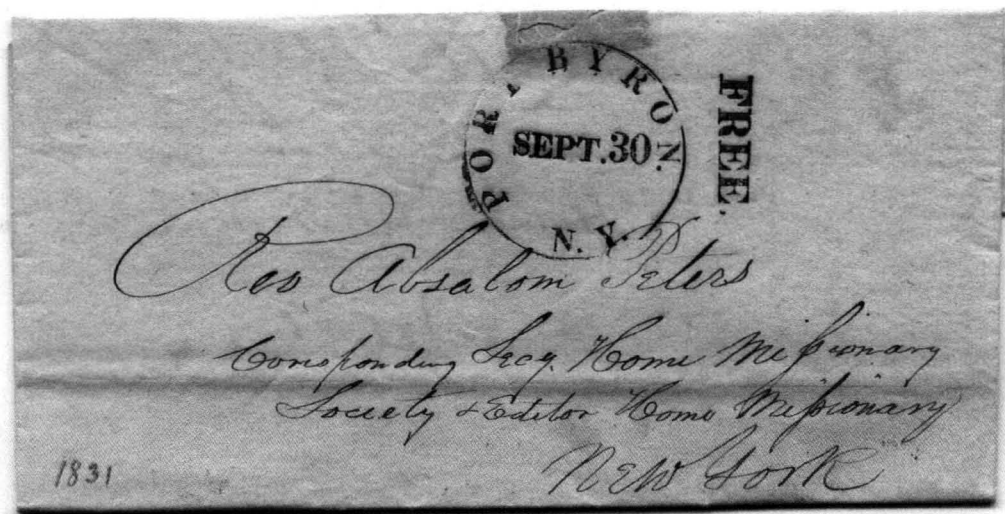 PORT BYRON.
SEPT.30
N.Y.
FREE.
Rev Absalom Peters
Corresponding Secy. Home Missionary
Society & Editor Home Missionary
New York
1831